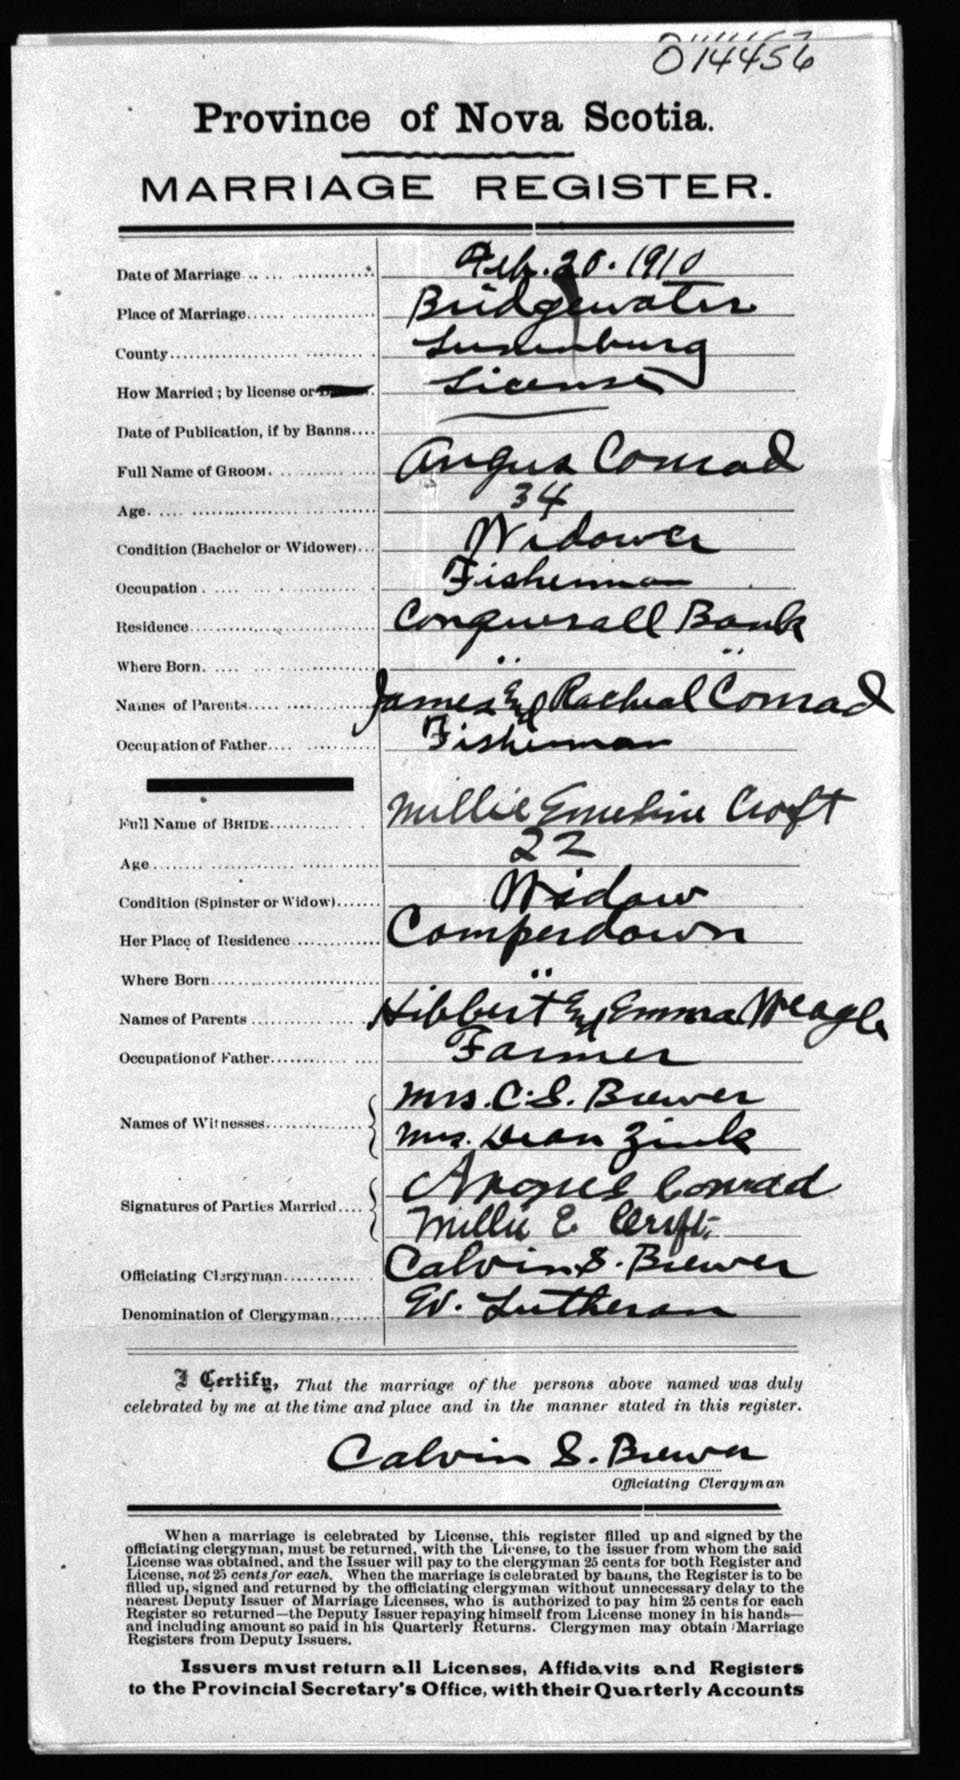 014456
Province of Nova Scotia.
MARRIAGE REGISTER.
Date of Marriage Feb. 20. 1910
Place of Marriage Bridgewater
County Lunenburg
How Married; by license or License
Date of Publication, if by Banns
Full Name of GROOM. Angus Conrad
Age. 34
Condition (Bachelor or Widower) Widower
Occupation Fisherman
Residence Conquerall Bank
Where Born. " "
Names of Parents James and Racheal Conrad
Occupation of Father Fisherman
Full Name of BRIDE Millie Emeline Croft
Age 22
Condition (Spinster or Widow) Widow
Her Place of Residence Comperdown
Where Born "
Names of Parents Hibbert and Emma Weagle
Occupation of Father Farmer
Names of Witnesses Mrs. C. S. Brewer
Mrs. Dean Zink
Signatures of Parties Married Angus Conrad
Millie E Croft
Officiating Clergyman Calvin S. Brewer
Denomination of Clergyman Ev. Lutheran
I Certify, That the marriage of the persons above named was duly
celebrated by me at the time and place and in the manner stated in this register.
Calvin S. Brewer
Officiating Clergyman
When a marriage is celebrated by License, this register filled up and signed by the
officiating clergyman, must be returned, with the License, to the issuer from whom the said
License was obtained, and the Issuer will pay to the clergyman 25 cents for both Register and
License, not 25 cents for each. When the marriage is celebrated by banns, the Register is to be
filled up, signed and returned by the officiating clergyman without unnecessary delay to the
nearest Deputy Issuer of Marriage Licenses, who is authorized to pay him 25 cents for each
Register so returned—the Deputy Issuer repaying himself from License money in his hands—
and including amount so paid in his Quarterly Returns. Clergymen may obtain Marriage
Registers from Deputy Issuers.
Issuers must return all Licenses, Affidavits and Registers
to the Provincial Secretary's Office, with their Quarterly Accounts